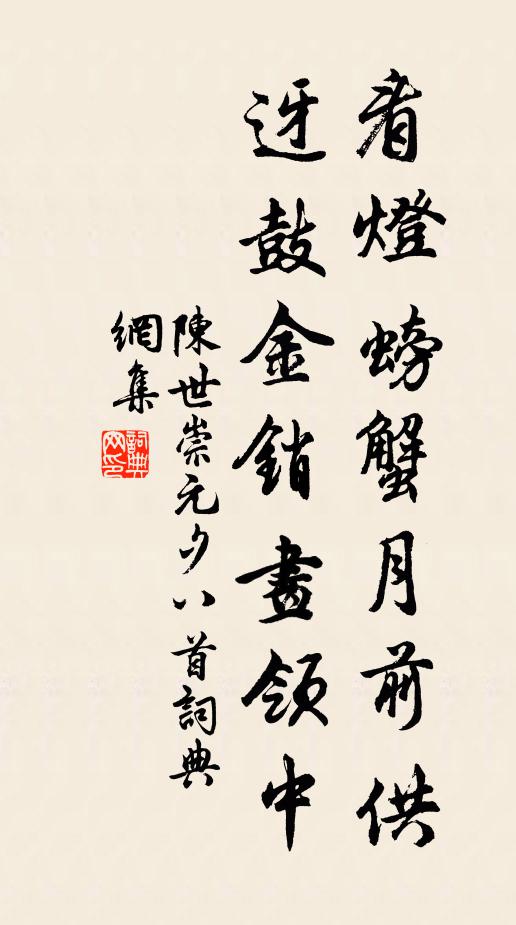 看燈螃蟹月前供
迓鼓金銷畫領中
陳世崇元夕八首詞典
網集
詞典網印